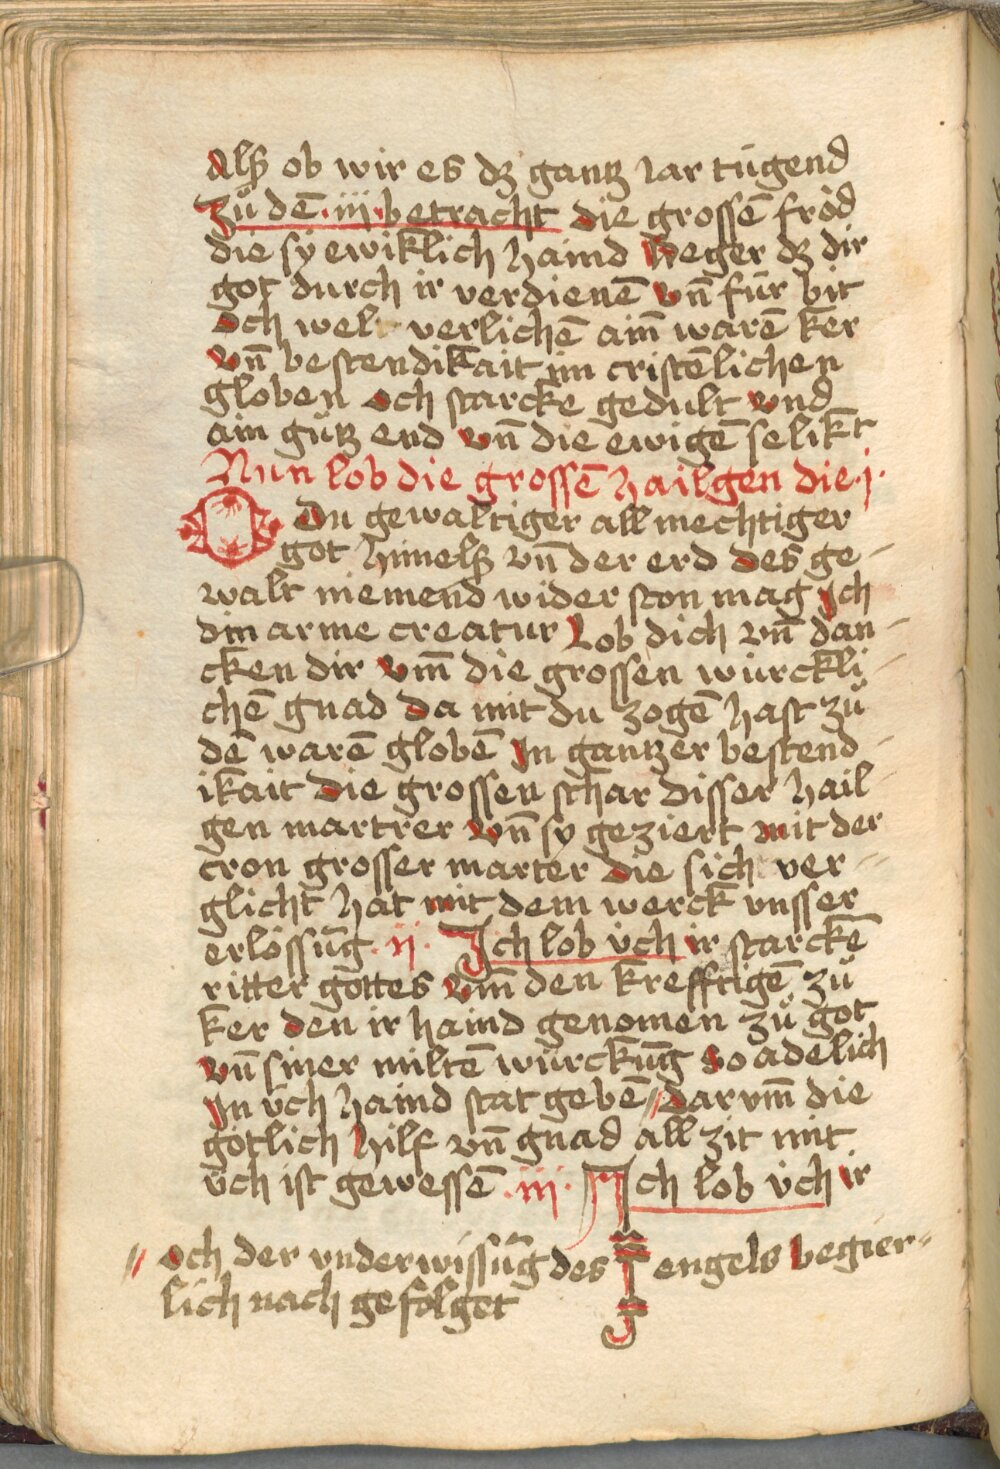 Alß ob wir es dz gantz Jar tůgend
Zů dē .iii. betracht die grossē fröd
die sy ewiklich haind Beger dz dir
got durch ir verdienē vn̄ für bit
Och wel verlichē ain̄ warē ker
vn̄ bestendikait im cristēlichen
globen Och starcke gedult vnd
ain gůtz end vn̄ die ewigē selikt
Nun lob die grossē hailgen die .j.
O Du gewaltiger allmechtiger
got himelß vn̄ der erd des ge-
walt niemend wider ston mag Ich
din arme creatur Lob dich vn̄ dan-
cken dir vm̄ die grossen würckli-
chē gnad da mit du zogē hast zů
dē warē globē In gantzer bestend-
ikait die grossen schar disser hail
gen martrer vn̄ sy geziert mit der
cron grosser marter die sich ver-
glicht hat mit dem werck vnsser
erlössūg .ii. Ich lob üch ir starckē
ritter gottes vm̄ den krefftigē zů
ker den ir haind genomen zů got
vn̄ siner miltē würckūg so adelich
In üch haind stat gebē // dar vm̄ die
götlich hilf vn̄ gnad all zit mit
üch ist gewessē .iii. Ich lob üch ir
// och der vnderwissūg des engels begier-
lich nach gefolget